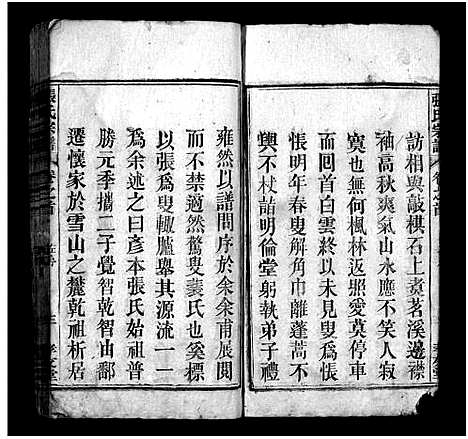 訪相與敲棋石上煑茗溪邊襟
袖高秋爽氣山水應不笑人寂
寞也無何楓林返照愛莫停車
而回首白雲終以未見叟為
悵明年春叟解角巾雕蓬蒿
興不杖詰明倫堂躬執弟子禮
雍然以譜問序於余余甫展閱
而不禁適然驚叟裴氏也奚標
以張為叟輙臚舉其源流一一
為余述之曰彥本張氏始祖普
勝元季攜二子覺智乾智由鄱
遷懷家於雪山之麓乾祖析居
張氏宗譜
卷之首